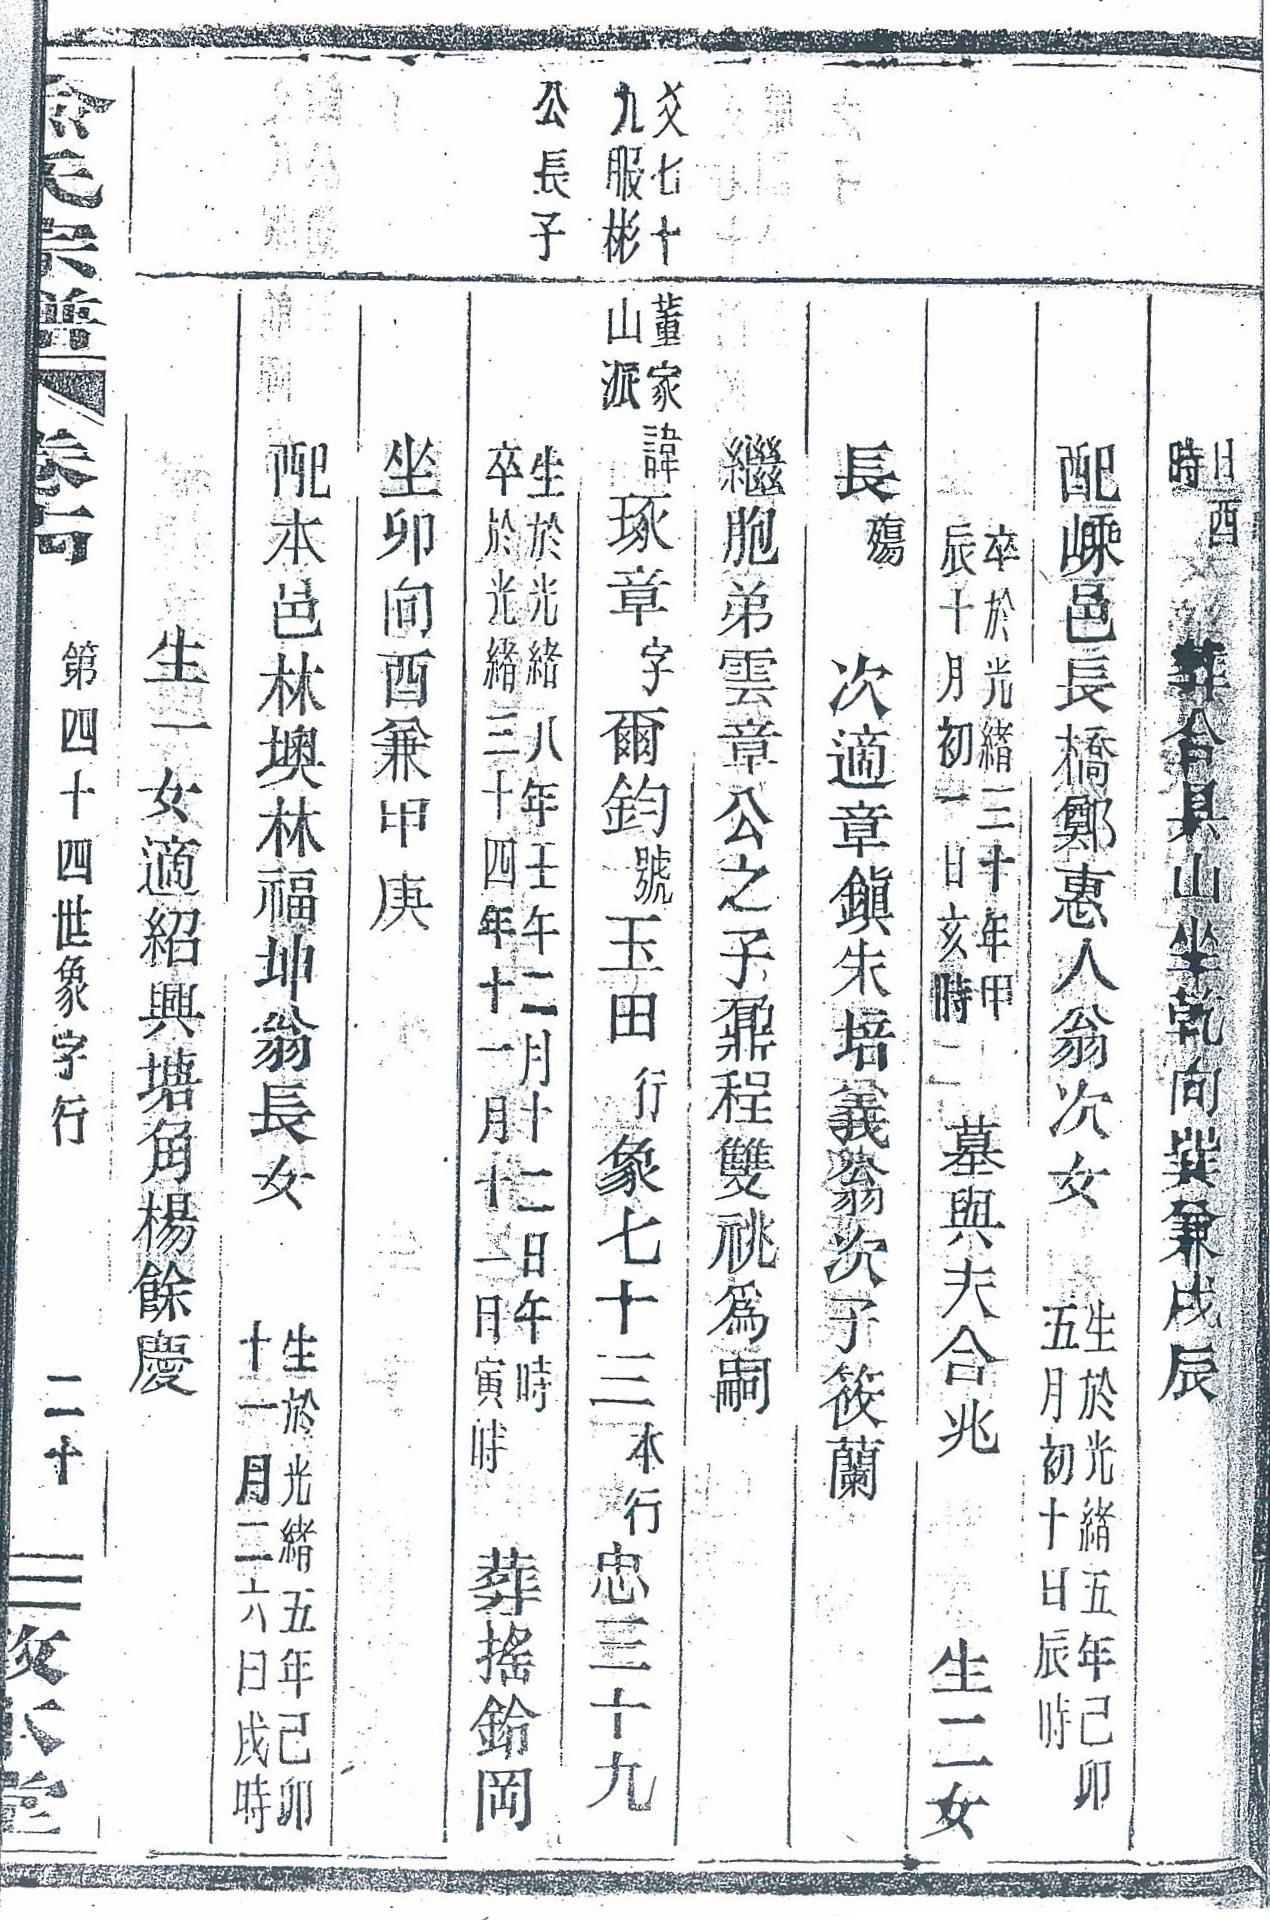 日酉
時
葬合具山坐乾向巽兼戌辰
配嵊邑長橋鄭惠人翁次女
生於光緒五年己卯
五月初十日辰時
卒於光緒三十年甲
辰十月初一日亥時
墓與夫合兆
生二女
長殤
次適章鎮朱培義翁次子筱蘭
繼胞弟雲章公之子鼐程雙祧爲嗣
爻七十
九服彬
公長子
董家
山派
諱琢章字爾鈞號玉田行象七十三本行忠三十九
生於光緒八年壬午二月十二日午時
卒於光緒三十四年十一月十一日寅時
葬搖鈴岡
坐卯向酉兼甲庚
配本邑林墺林福坤翁長女
生於光緒五年己卯
十一月二六日戌時
生一女適紹興塘角楊餘慶
俞氏宗譜
卷六
第四十四世象字行
二十
敦本堂